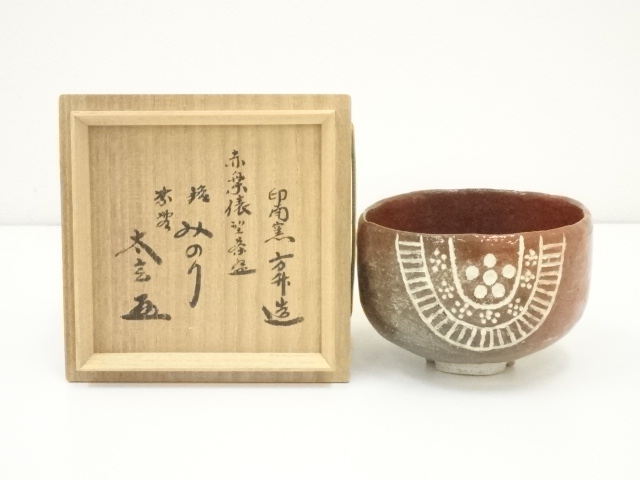 印南窯 造
赤楽俵型茶盌
銘 みのり
紫野 太玄